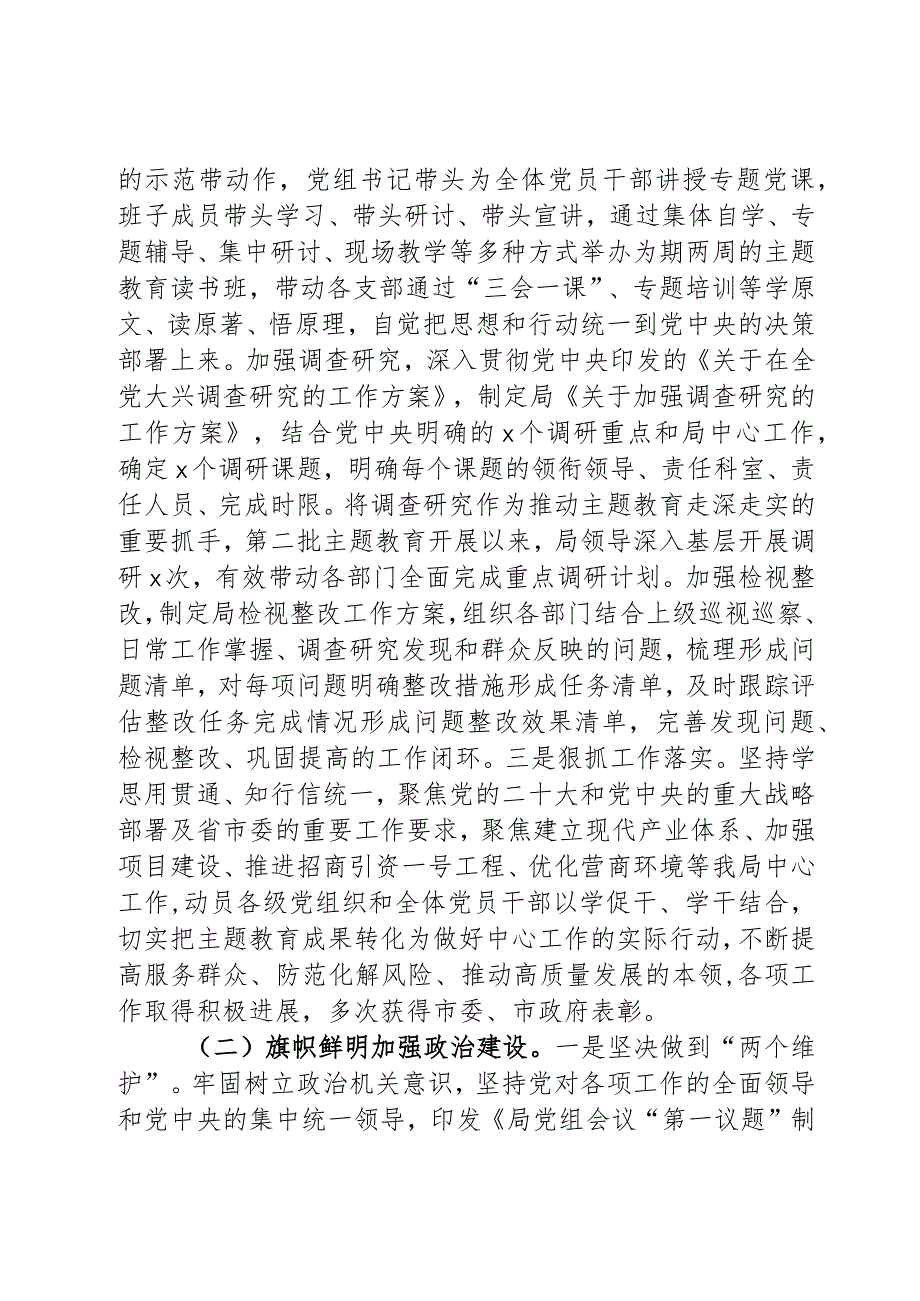 的示范带动作，党组书记带头为全体党员干部讲授专题党课，
班子成员带头学习、带头研讨、带头宣讲，通过集体自学、专
题辅导、集中研讨、现场教学等多种方式举办为期两周的主题
教育读书班，带动各支部通过“三会一课”、专题培训等学原
文、读原著、悟原理，自觉把思想和行动统一到党中央的决策
部署上来。加强调查研究，深入贯彻党中央印发的《关于在全
党大兴调查研究的工作方案》，制定局《关于加强调查研究的
工作方案》，结合党中央明确的x个调研重点和局中心工作，
确定x个调研课题，明确每个课题的领衔领导、责任科室、责
任人员、完成时限。将调查研究作为推动主题教育走深走实的
重要抓手，第二批主题教育开展以来，局领导深入基层开展调
研x次，有效带动各部门全面完成重点调研计划。加强检视整
改，制定局检视整改工作方案，组织各部门结合上级巡视巡察、
日常工作掌握、调查研究发现和群众反映的问题，梳理形成问
题清单，对每项问题明确整改措施形成任务清单，及时跟踪评
估整改任务完成情况形成问题整改效果清单，完善发现问题、
检视整改、巩固提高的工作闭环。三是狠抓工作落实。坚持学
思用贯通、知行信统一，聚焦党的二十大和党中央的重大战略
部署及省市委的重要工作要求，聚焦建立现代产业体系、加强
项目建设、推进招商引资一号工程、优化营商环境等我局中心
工作,动员各级党组织和全体党员干部以学促干、学干结合，
切实把主题教育成果转化为做好中心工作的实际行动，不断提
高服务群众、防范化解风险、推动高质量发展的本领,各项工
作取得积极进展，多次获得市委、市政府表彰。
（二）旗帜鲜明加强政治建设。一是坚决做到“两个维
护”。牢固树立政治机关意识，坚持党对各项工作的全面领导
和党中央的集中统一领导，印发《局党组会议“第一议题”制